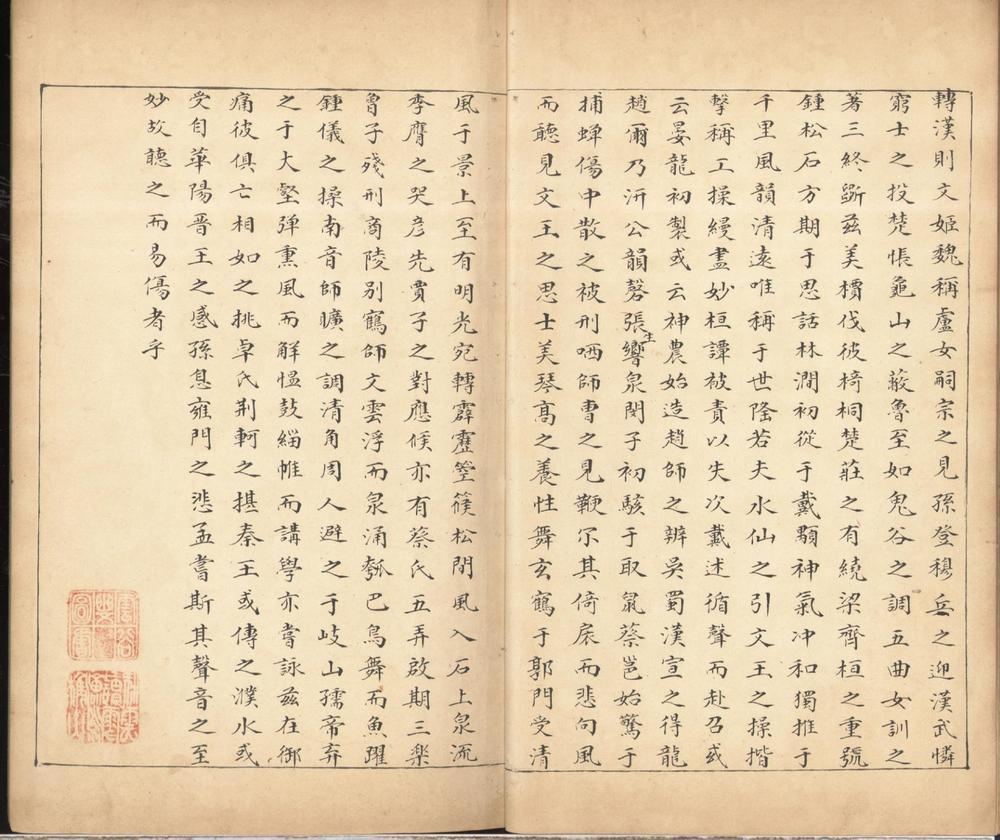 轉漢則文姬魏稱盧女嗣宗之見孫登穆岳之迎漢武憐
窮士之投楚悵龜山之蔽魯至如鬼谷之調五曲女訓之
著三終斵茲美檟伐彼椅桐楚莊之有繞梁齊桓之重號
鍾松石方期于思話林澗初從于戴顒神氣冲和獨推于
千里風韻清遠唯稱于世隆若夫水仙之引文王之操揩
擊稱工操縵盡妙桓譚被責以失次戴述循聲而赴召或
云晏龍初製或云神農始造趙師之辨吳蜀漢宣之得龍
趙爾乃汧公韻磬張生響泉閔子初駭于取鼠蔡邕始驚于
捕蟬傷中散之被刑哂師曹之見鞭尔其倚扆而悲句風
而聽見文王之思士美琴高之養性舞玄鶴于郭門受清
風于景上至有明光宛轉霹靂箜篌松間風入石上泉流
季膺之哭彥先賈子之對應侯亦有蔡氏五弄啟期三樂
曾子殘刑商陵别鶴師文雲浮而泉涌瓠巴鳥舞而魚躍
鍾儀之操南音師曠之調清角周人避之于岐山孺帝弃
之于大壑彈熏風而解愠鼓緇帷而講學亦嘗詠茲在御
痛彼俱亡相如之挑卓氏荆軻之揕秦王或傳之濮水或
受自華陽晋王之感孫息雍門之悲孟嘗斯其聲音之至
妙故聽之而易傷者乎